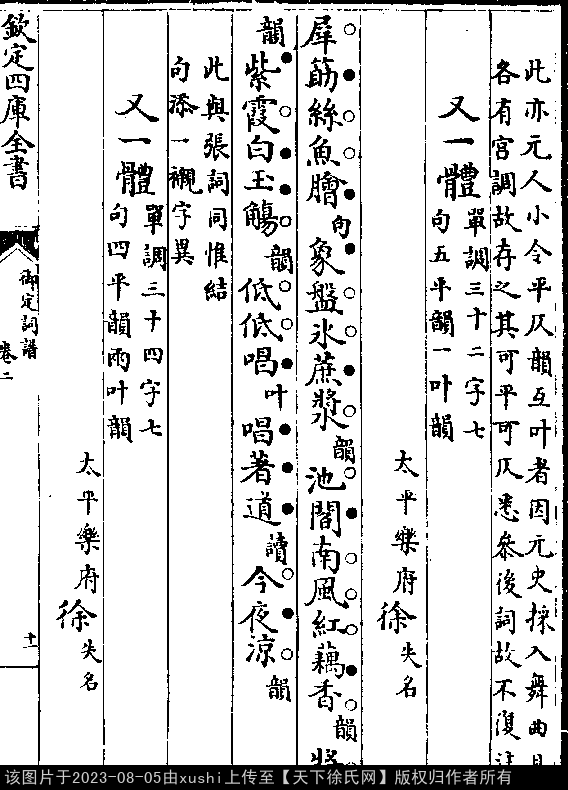 此亦元人小令平仄韻互叶者因元史採入舞曲且
各有宮調故存之其可平可仄悉參後詞故不復註
又一體 單調三十二字七
句五平韻一叶韻
太平樂府徐失名
犀筯絲魚膾句 象盤氷蔗漿韻 池閣南風紅藕香韻 將
韻 紫霞白玉觴韻 低低唱叶 唱著道讀 今夜涼韻
此與張詞同惟結
句添一襯字異
又一體 單調三十四字七
句四平韻兩叶韻
太平樂府徐失名
欽定四庫全書
御定詞譜
卷二
十一
该图片于2023-08-05由xushi上传至【天下徐氏网】版权归作者所有